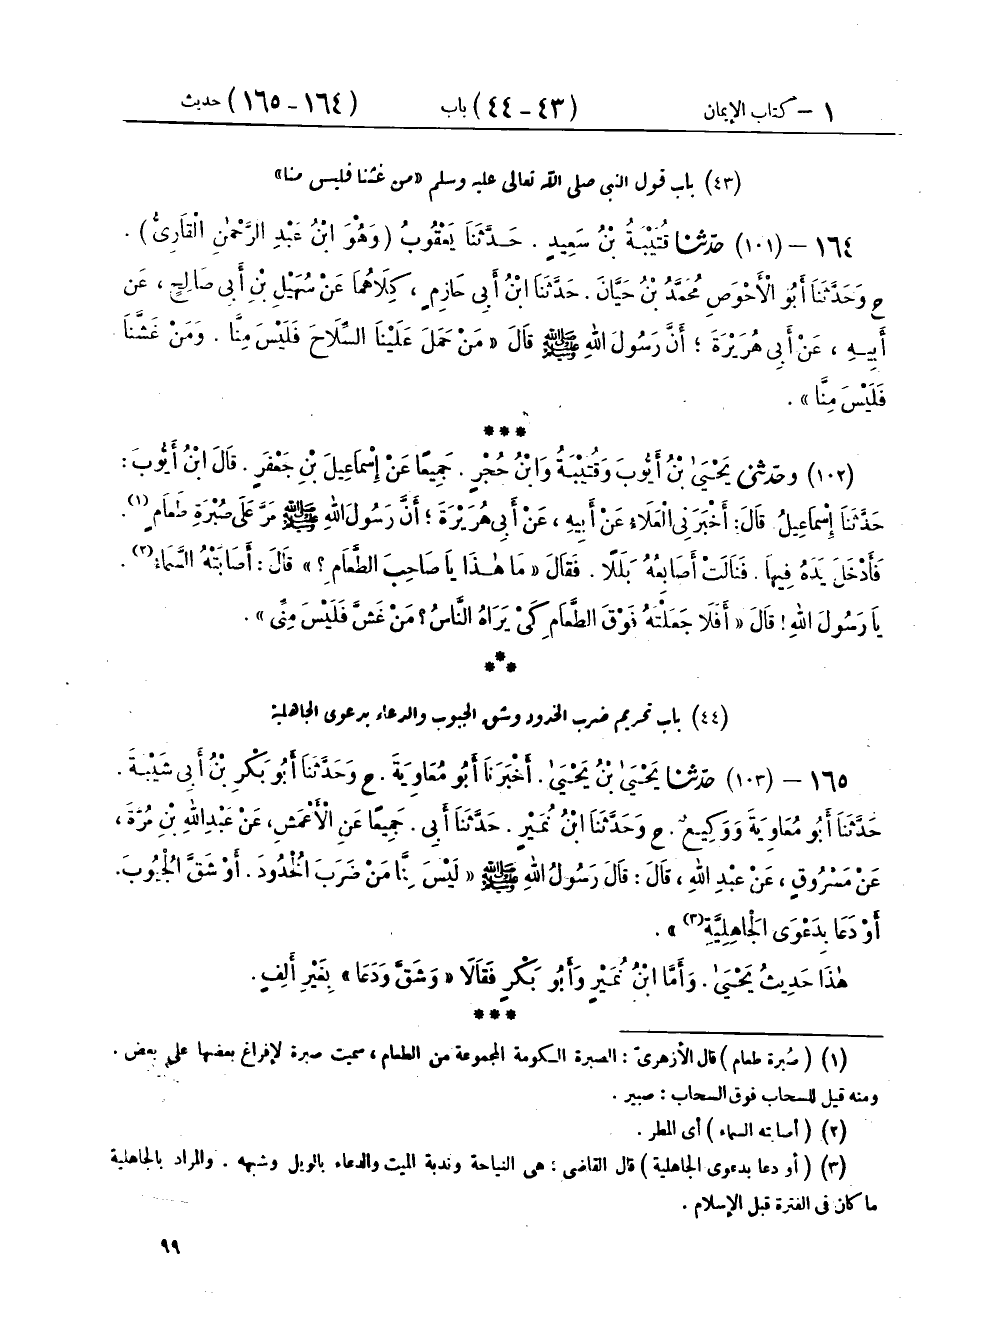 ١ – كتاب الإيمان (٤٣ - ٤٤) باب (١٦٤ - ١٦٥) حديث
(٤٣) باب قول النبي صلى الله تعالى عليه وسلم «من غشنا فليس منا»
١٦٤ – (١٠١) حدّثنا قُتَيْبَةُ بْنُ سَعِيدٍ . حَدَّثَنَا يَعْقُوبُ (وَهُوَ ابْنُ عَبْدِ الرَّحْمٰنِ الْقَارِيُّ) .
ح وَحَدَّثَنَا أَبُو الْأَحْوَصِ مُحَمَّدُ بْنُ حَيَّانَ . حَدَّثَنَا ابْنُ أَبِي حَازِمٍ ، كِلَاهُمَا عَنْ سُهَيْلِ بْنِ أَبِي صَالِحٍ ، عَنْ
أَبِيهِ ، عَنْ أَبِي هُرَيْرَةَ ؛ أَنَّ رَسُولَ اللهِ ﷺ قَالَ « مَنْ حَمَلَ عَلَيْنَا السِّلَاحَ فَلَيْسَ مِنَّا . وَمَنْ غَشَّنَا
فَلَيْسَ مِنَّا » .
***
(١٠٢) وحدّثني يَحْيَىٰ بْنُ أَيُّوبَ وَقُتَيْبَةُ وَابْنُ حُجْرٍ . جَمِيعًا عَنْ إِسْمَاعِيلَ بْنِ جَعْفَرٍ . قَالَ ابْنُ أَيُّوبَ :
حَدَّثَنَا إِسْمَاعِيلُ قَالَ: أَخْبَرَنِي الْعَلَاءُ عَنْ أَبِيهِ ، عَنْ أَبِي هُرَيْرَةَ ؛ أَنَّ رَسُولَ اللهِ ﷺ مَرَّ عَلَى صُبْرَةِ طَعَامٍ (١) .
فَأَدْخَلَ يَدَهُ فِيهَا . فَنَالَتْ أَصَابِعُهُ بَلَلًا . فَقَالَ « مَا هٰذَا يَا صَاحِبَ الطَّعَامِ ؟ » قَالَ : أَصَابَتْهُ السَّمَاءُ (٢) .
يَا رَسُولَ اللهِ ! قَالَ « أَفَلَا جَعَلْتَهُ فَوْقَ الطَّعَامِ كَيْ يَرَاهُ النَّاسُ ؟ مَنْ غَشَّ فَلَيْسَ مِنِّي » .
***
(٤٤) باب تحريم ضرب الخدود وشق الجيوب والدعاء بدعوى الجاهلية
١٦٥ – (١٠٣) حدّثنا يَحْيَىٰ بْنُ يَحْيَىٰ . أَخْبَرَنَا أَبُو مُعَاوِيَةَ . ح وَحَدَّثَنَا أَبُو بَكْرِ بْنُ أَبِي شَيْبَةَ .
حَدَّثَنَا أَبُو مُعَاوِيَةَ وَوَكِيعٌ . ح وَحَدَّثَنَا ابْنُ نُمَيْرٍ . حَدَّثَنَا أَبِي . جَمِيعًا عَنِ الْأَعْمَشِ، عَنْ عَبْدِ اللهِ بْنِ مُرَّةَ ،
عَنْ مَسْرُوقٍ ، عَنْ عَبْدِ اللهِ ، قَالَ : قَالَ رَسُولُ اللهِ ﷺ « لَيْسَ مِنَّا مَنْ ضَرَبَ الْخُدُودَ . أَوْ شَقَّ الْجُيُوبَ .
أَوْ دَعَا بِدَعْوَى الْجَاهِلِيَّةِ (٣) » .
هٰذَا حَدِيثُ يَحْيَىٰ . وَأَمَّا ابْنُ نُمَيْرٍ وَأَبُو بَكْرٍ فَقَالَا « وَشَقَّ وَدَعَا » بِغَيْرِ أَلِفٍ .
***
(١) ( صُبرة طعام ) قال الأزهرى : الصبرة الكومة المجموعة من الطعام ، سميت صبرة لإفراغ بعضها على بعض .
ومنه قيل للسحاب فوق السحاب : صبير .
(٢) ( أصابته السماء ) أى المطر .
(٣) ( أو دعا بدعوى الجاهلية ) قال القاضى : هى النياحة وندبة الميت والدعاء بالويل وشبهه . والمراد بالجاهلية
ما كان فى الفترة قبل الإسلام .
٩٩